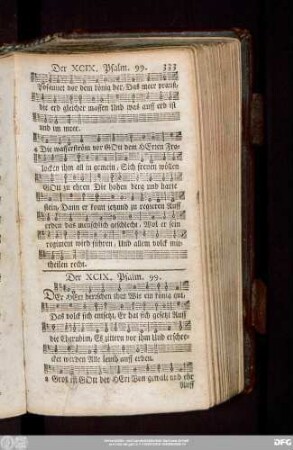 Der XCIX. Psalm. 99. 333
Posaunet vor dem könig her. Das meer praust,
die erd gleicher massen Und was auff erd ist
und im meer.
4 Die wasserström vor GOtt dem HErren Fro-
locken ihm all in gemein. Sich frewen wöllen
GOtt zu ehren Die hohen berg und harte
stein, Dann er komt jetzund zu regieren Auff
erden das menschlich geschlecht, Wol er sein
regiment wird führen, Und allem volck mit-
theilen recht.
Der XCIX. Psalm. 99.
DEr HErr herrschen thut Wie ein könig gut,
Das volck sich entsetzt, Er hat sich gesetzt Auff
die Cherubim, Es zittern vor ihm Und erschre-
cket werden Alle leuth auff erden.
2 Groß ist GOtt der HErr Von gewalt und ehr
Auff